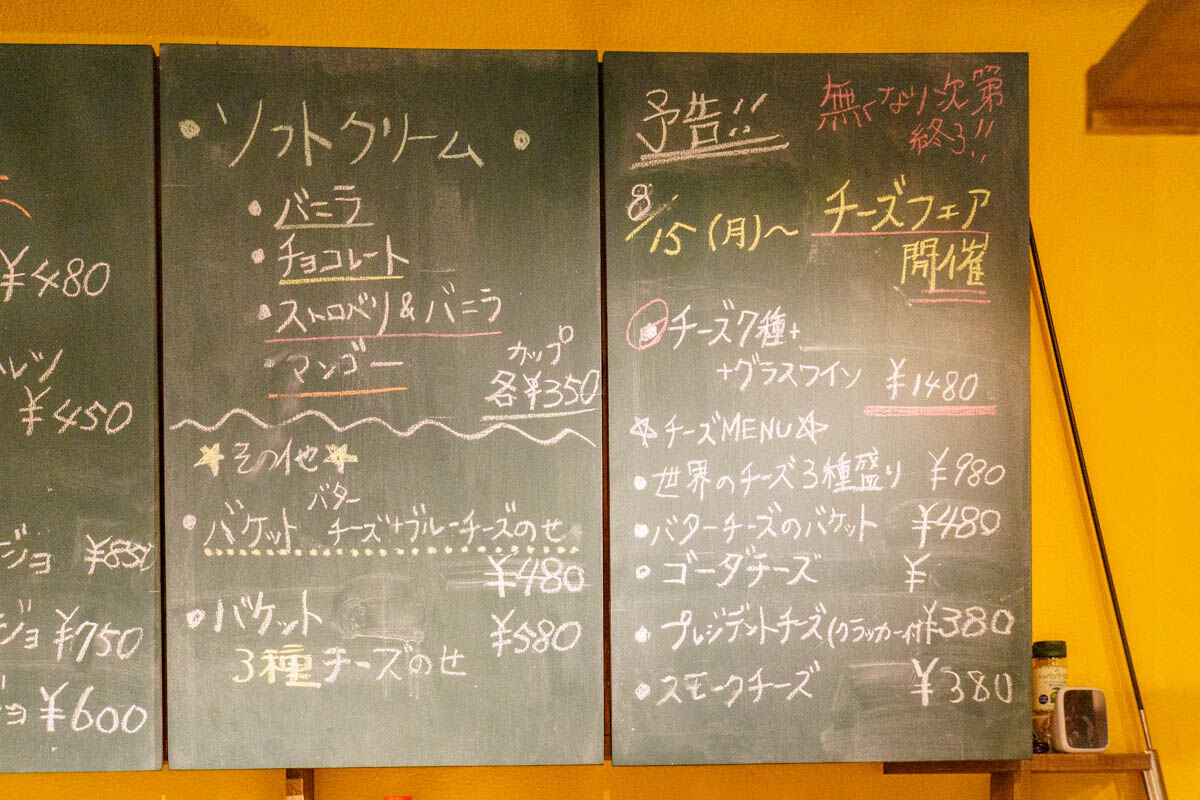 ¥480
ルツ
¥450
ジョ ¥850
ジョ ¥750
ジョ ¥600
・ソフトクリーム・
・バニラ
・チョコレート
・ストロベリ&バニラ
・マンゴー
カップ
各¥350
☆その他☆
・バケット バター
チーズ+ブルーチーズのせ
¥480
・バケット ¥580
3種チーズのせ
予告!!
無くなり次第
終了!!
8/15(月)〜 チーズフェア
開催
チーズ7種+
+グラスワイン ¥1480
☆チーズMENU☆
・世界のチーズ3種盛り ¥980
・バターチーズのバケット ¥480
・ゴーダチーズ ¥
・プレジデントチーズ(クラッカー付 ¥380
・スモークチーズ ¥380